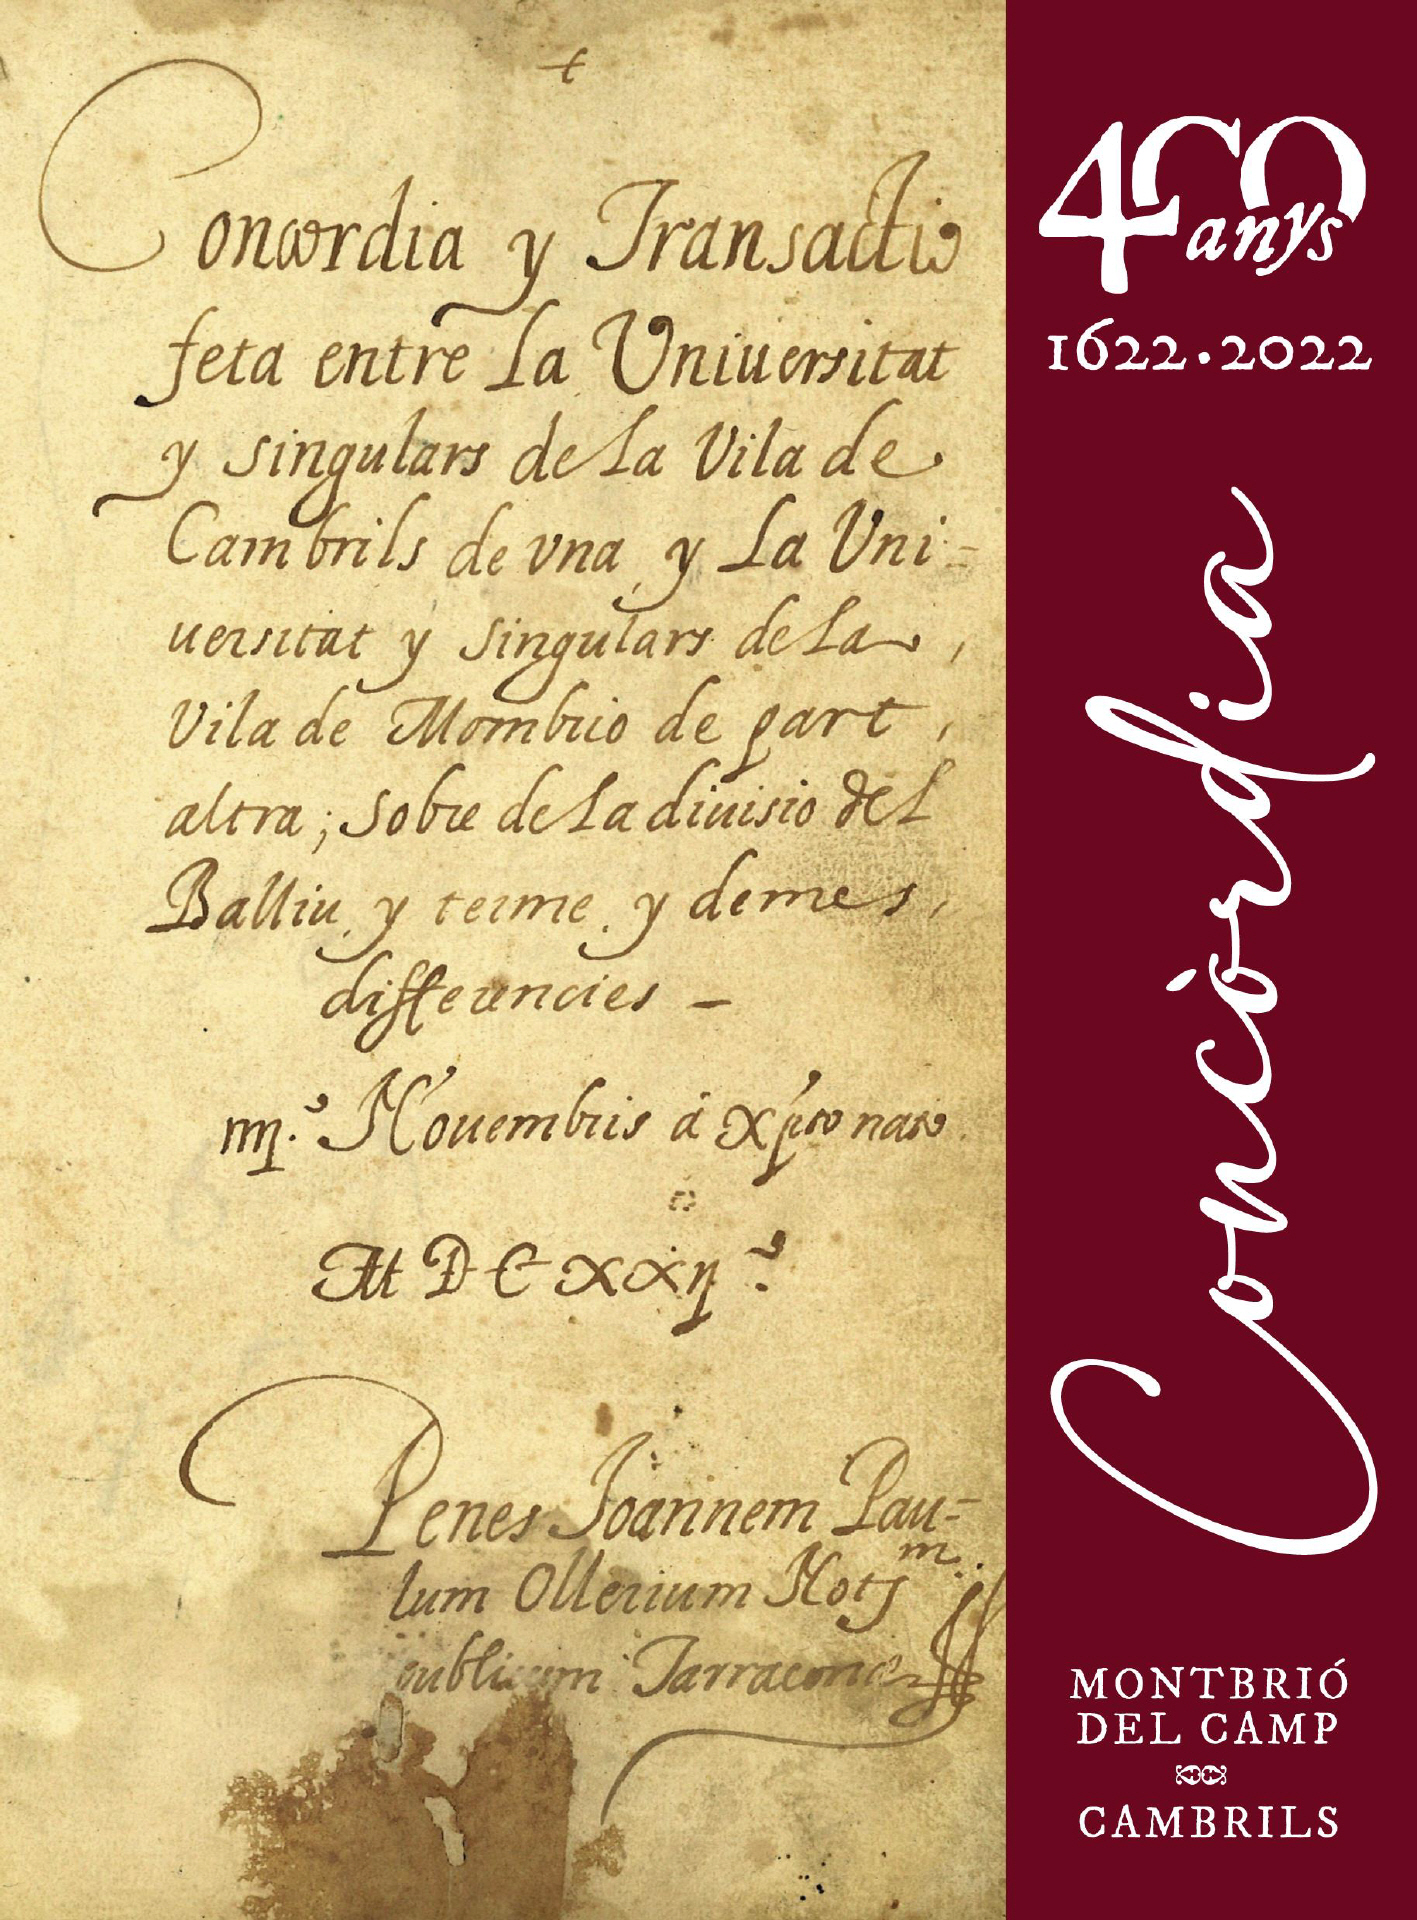 +
Concordia y Transactio
feta entre la Uniuersitat
y singulars de la Vila de
Cambrils de vna, y la Uni-
uersitat y singulars de la
Vila de Mombrio de part
altra; sobre de la diuisio del
Balliu, y terme, y demes
differencies –
iiij.º Nouembris á Xp̄to nato
M D C XX ij.º
Penes Joannem Pau-
lum Ollerium Notm.
publicum Tarracone
400
anys
1622·2022
Concòrdia
MONTBRIÓ
DEL CAMP
CAMBRILS